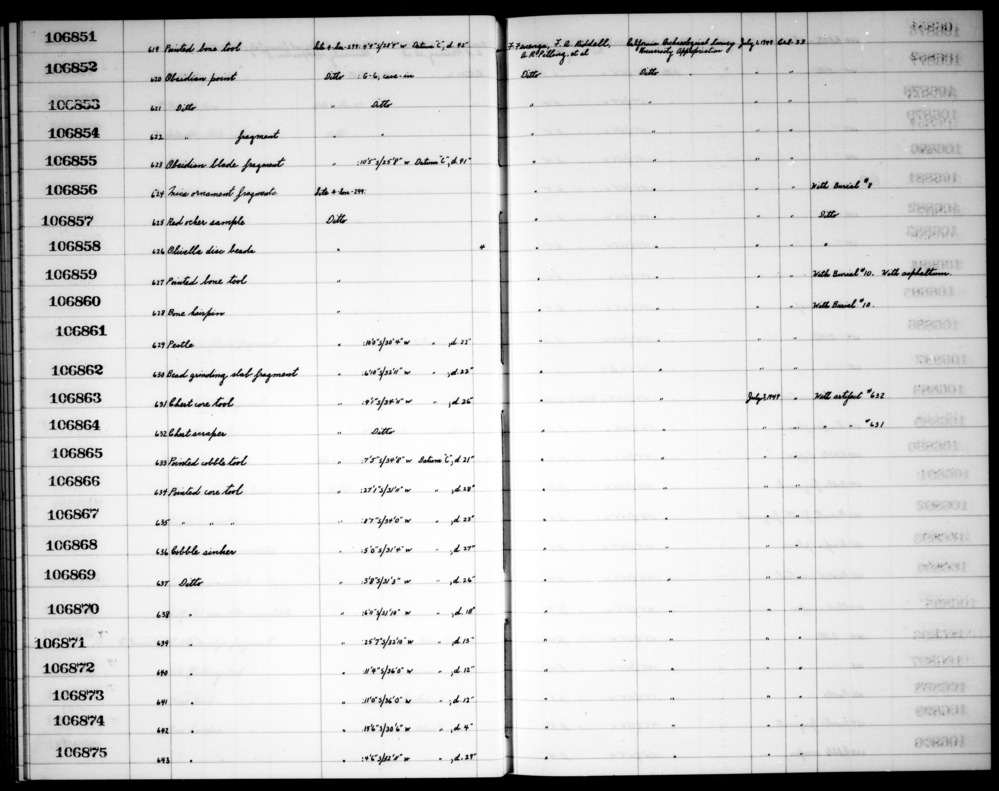 106851 619 Pointed bone tool Site 4-Lan-299: 4'9" S/28'8" W Datum "C", d. 45" F. Fenenga, F. A. Riddell, California Archaeological Survey July 6, 1949 Cat-33
A. R. Pilling, et al University Appropriation
106852 620 Obsidian point Ditto :6-6, cave-in Ditto Ditto " " "
106853 621 Ditto " Ditto " " " "
106854 622 fragment " " " " "
106855 623 Obsidian blade fragment " :10'5" S/25'8" W Datum "C", d. 41" " " " "
106856 624 Mica ornament fragments Site 4-Lan-299: " " " " With Burial #8
106857 625 Red ocher sample Ditto " " " " Ditto
106858 626 Olivella disc beads " 4 " " " " "
106859 627 Pointed bone tool " " " " " With Burial #10. With asphaltum.
106860 628 Bone hairpin " " " " " With Burial #10.
106861 629 Pestle " :10'0" S/30'4" W " , d. 22" " " " "
106862 630 Bead grinding slab fragment " :6'10" S/32'11" W " , d. 22" " " " "
106863 631 Chert core tool " :9'1" S/34'0" W " , d. 26" " " July 7, 1949 " With artifact #632
106864 632 Chert scraper " Ditto " " " " " " #631
106865 633 Pointed cobble tool " :7'5" S/34'8" W Datum "C", d. 21" " " " "
106866 634 Pointed core tool " :27'1" S/31'0" W " , d. 28" " " " "
106867 635 " " " " :8'7" S/34'0" W " , d. 23" " " " "
106868 636 Cobble sinker " :5'0" S/31'4" W " , d. 27" " " " "
106869 637 Ditto " :3'8" S/31'3" W " , d. 26" " " " "
106870 638 " " :6'11" S/31'10" W " , d. 18" " " " "
106871 639 " " :25'7" S/22'10" W " , d. 13" " " " "
106872 640 " " :11'4" S/36'0" W " , d. 12" " " " "
106873 641 " " :11'0" S/36'0" W " , d. 12" " " " "
106874 642 " " :19'6" S/30'6" W " , d. 4" " " " "
106875 643 " " :4'6" S/32'8" W " , d. 29" " " " "